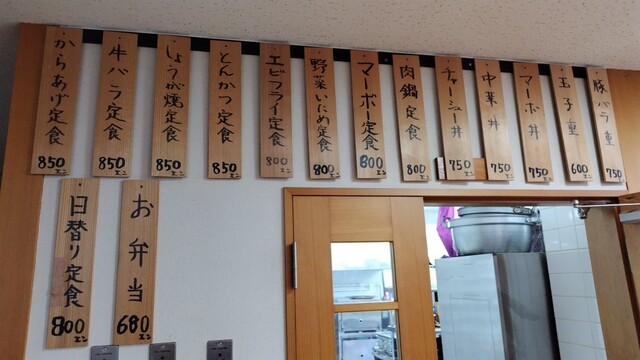 からあげ定食
850エン
牛バラ定食
850エン
しょうが焼定食
850エン
とんかつ定食
850
エビフライ定食
800
野菜いため定食
800エン
マーボー定食
800エン
肉鍋定食
800エン
チャーシュー丼
750エン
中華丼
750エン
マーボ丼
750エン
玉子重
600エン
豚バラ重
750エン
日替り定食
800エン
お弁当
680エン